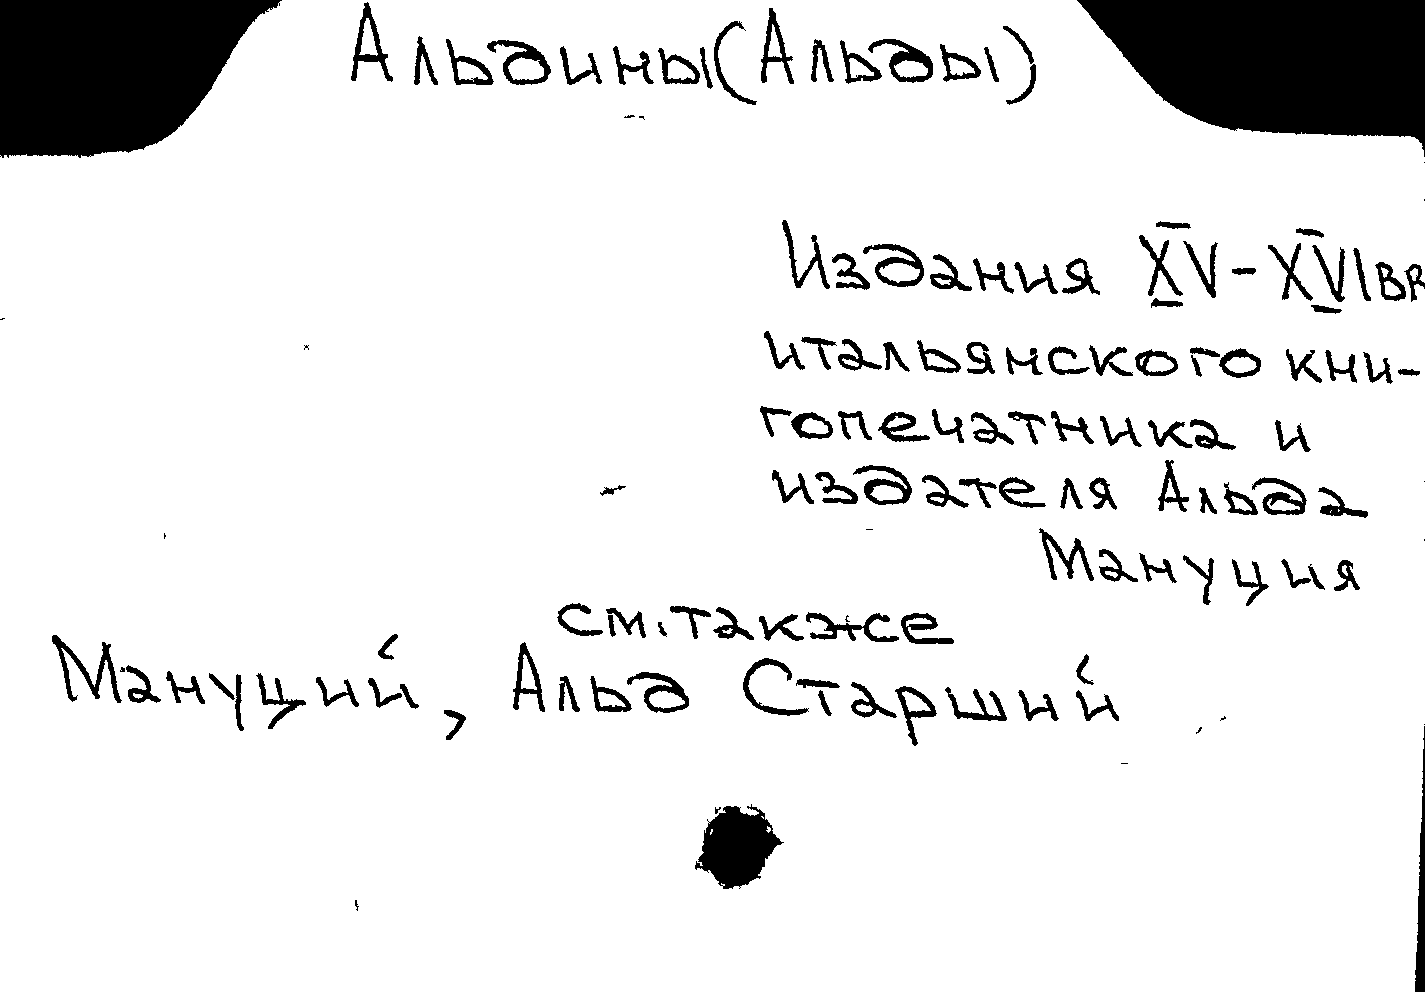 Альдины (Альды)
Издания XV-XVI вв
итальянского кни-
гопечатника и
издателя Альда
Мануция
см. также
Мануций, Альд Старший